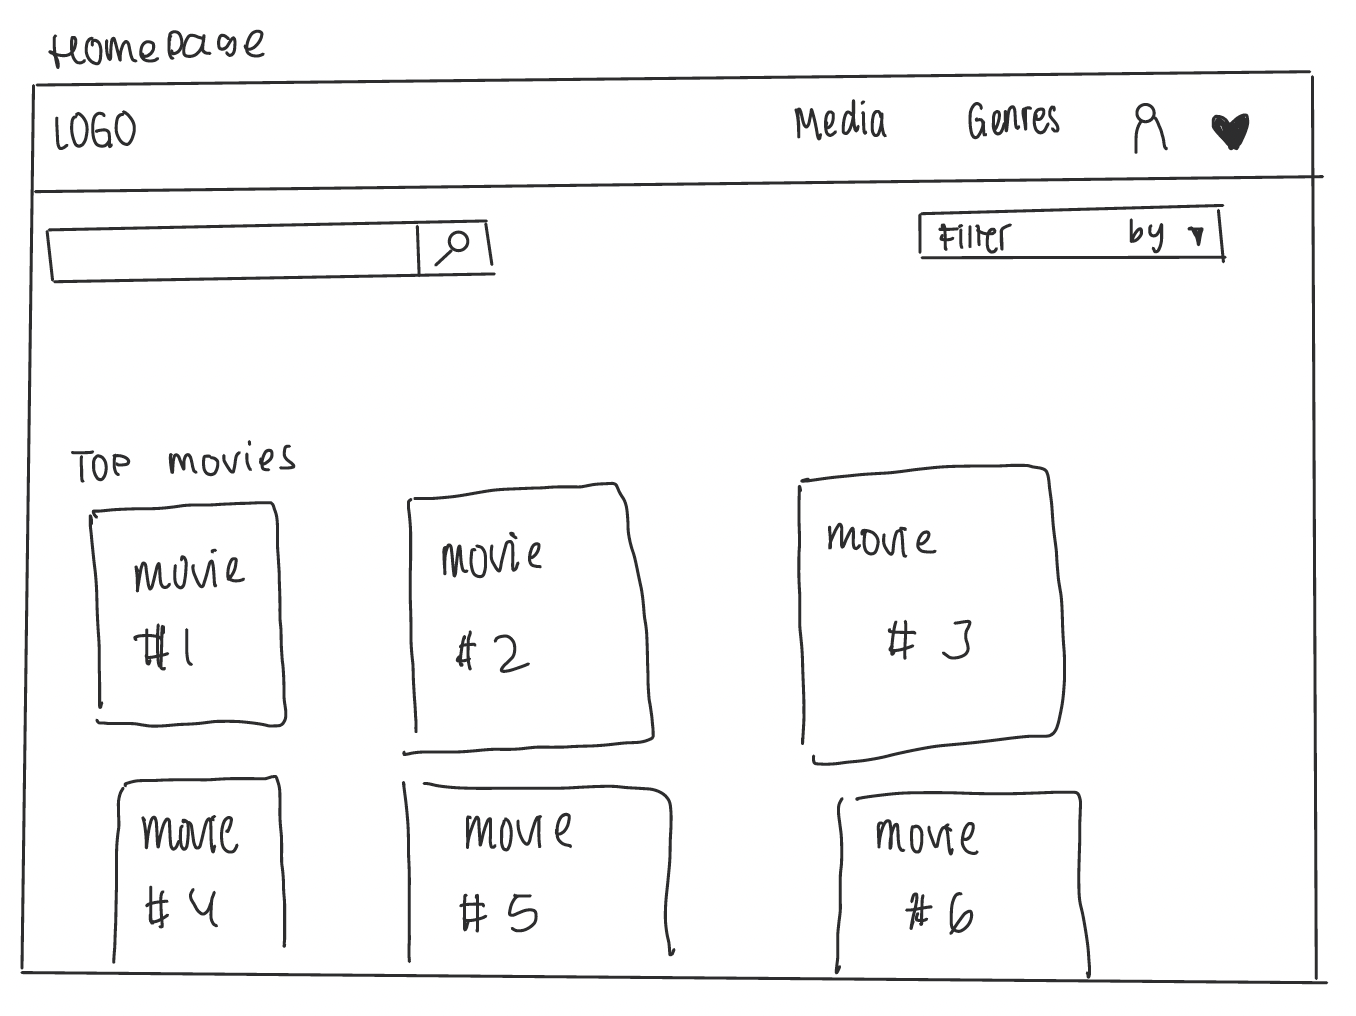 Homepage
LOGO Media Genres
Filter by
Top movies
movie movie movie
#1 #2 #3
movie movie movie
#4 #5 #6